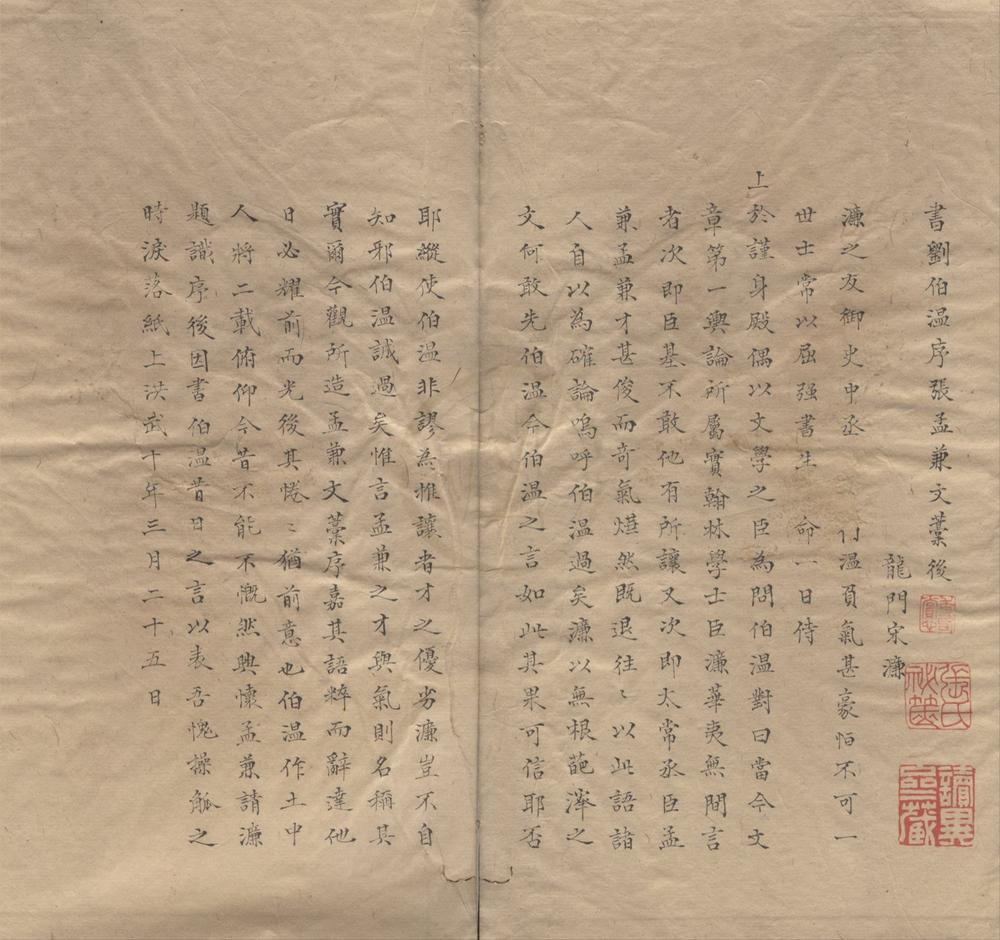 書劉伯溫序張孟兼文藁後
龍門宋濂
濂之友御史中丞 溫負氣甚豪恒不可一
世士常以屈强書生 命一日侍
上於謹身殿偶以文學之臣為問伯溫對曰當今文
章第一輿論所屬實翰林學士臣濂華夷無間言
者次即臣基不敢他有所讓又次即太常丞臣孟
兼孟兼才甚俊而奇氣燁然既退往〻以此語諸
人自以為確論嗚呼伯溫過矣濂以無根葩澤之
文何敢先伯溫今伯溫之言如此其果可信耶否
耶縱使伯溫非謬為推讓者才之優劣濂豈不自
知邪伯溫誠過矣惟言孟兼之才與氣則名稱其
實爾今觀所造孟兼文藁序嘉其語粹而辭達他
日必耀前而光後其惓〻猶前意也伯溫作土中
人將二載俯仰今昔不能不慨然興懷孟兼請濂
題識序後因書伯溫昔日之言以表吾愧操觚之
時淚落紙上洪武十年三月二十五日